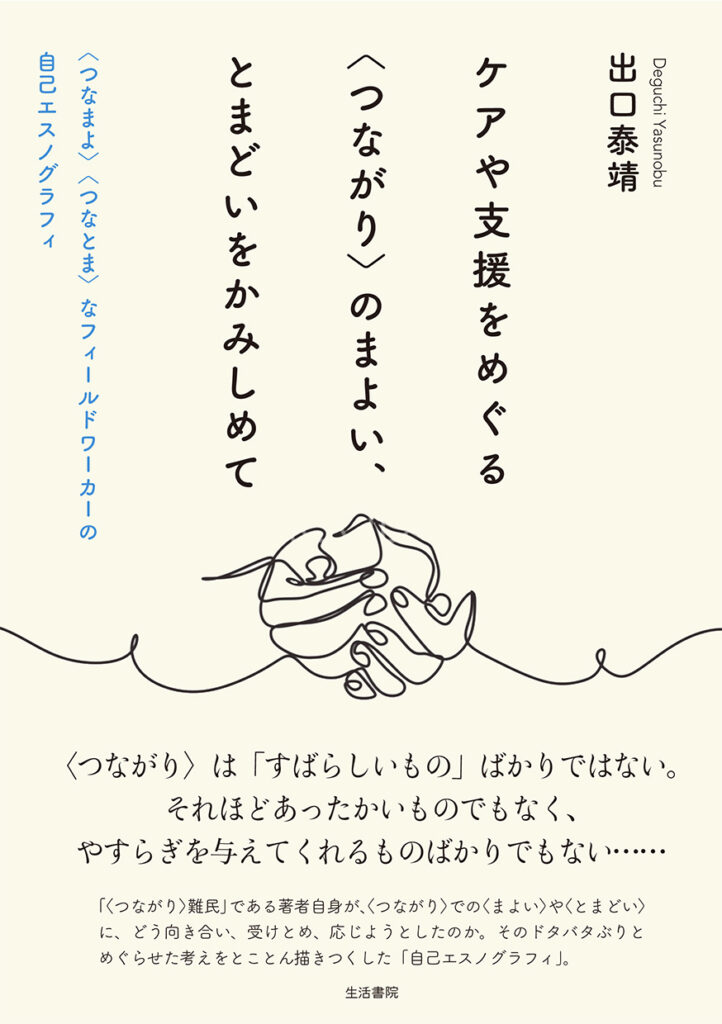 出口泰靖
Deguchi Yasunobu
ケアや支援をめぐる
〈つながり〉のまよい、
とまどいをかみしめて
〈つなまよ〉〈つなとま〉なフィールドワーカーの
自己エスノグラフィ
〈つながり〉は「すばらしいもの」ばかりではない。
それほどあったかいものでもなく、
やすらぎを与えてくれるものばかりでもない……
「〈つながり〉難民」である著者自身が、〈つながり〉での〈まよい〉や〈とまどい〉
に、どう向き合い、受けとめ、応じようとしたのか。そのドタバタぶりと
めぐらせた考えをとことん描きつくした「自己エスノグラフィ」。
生活書院